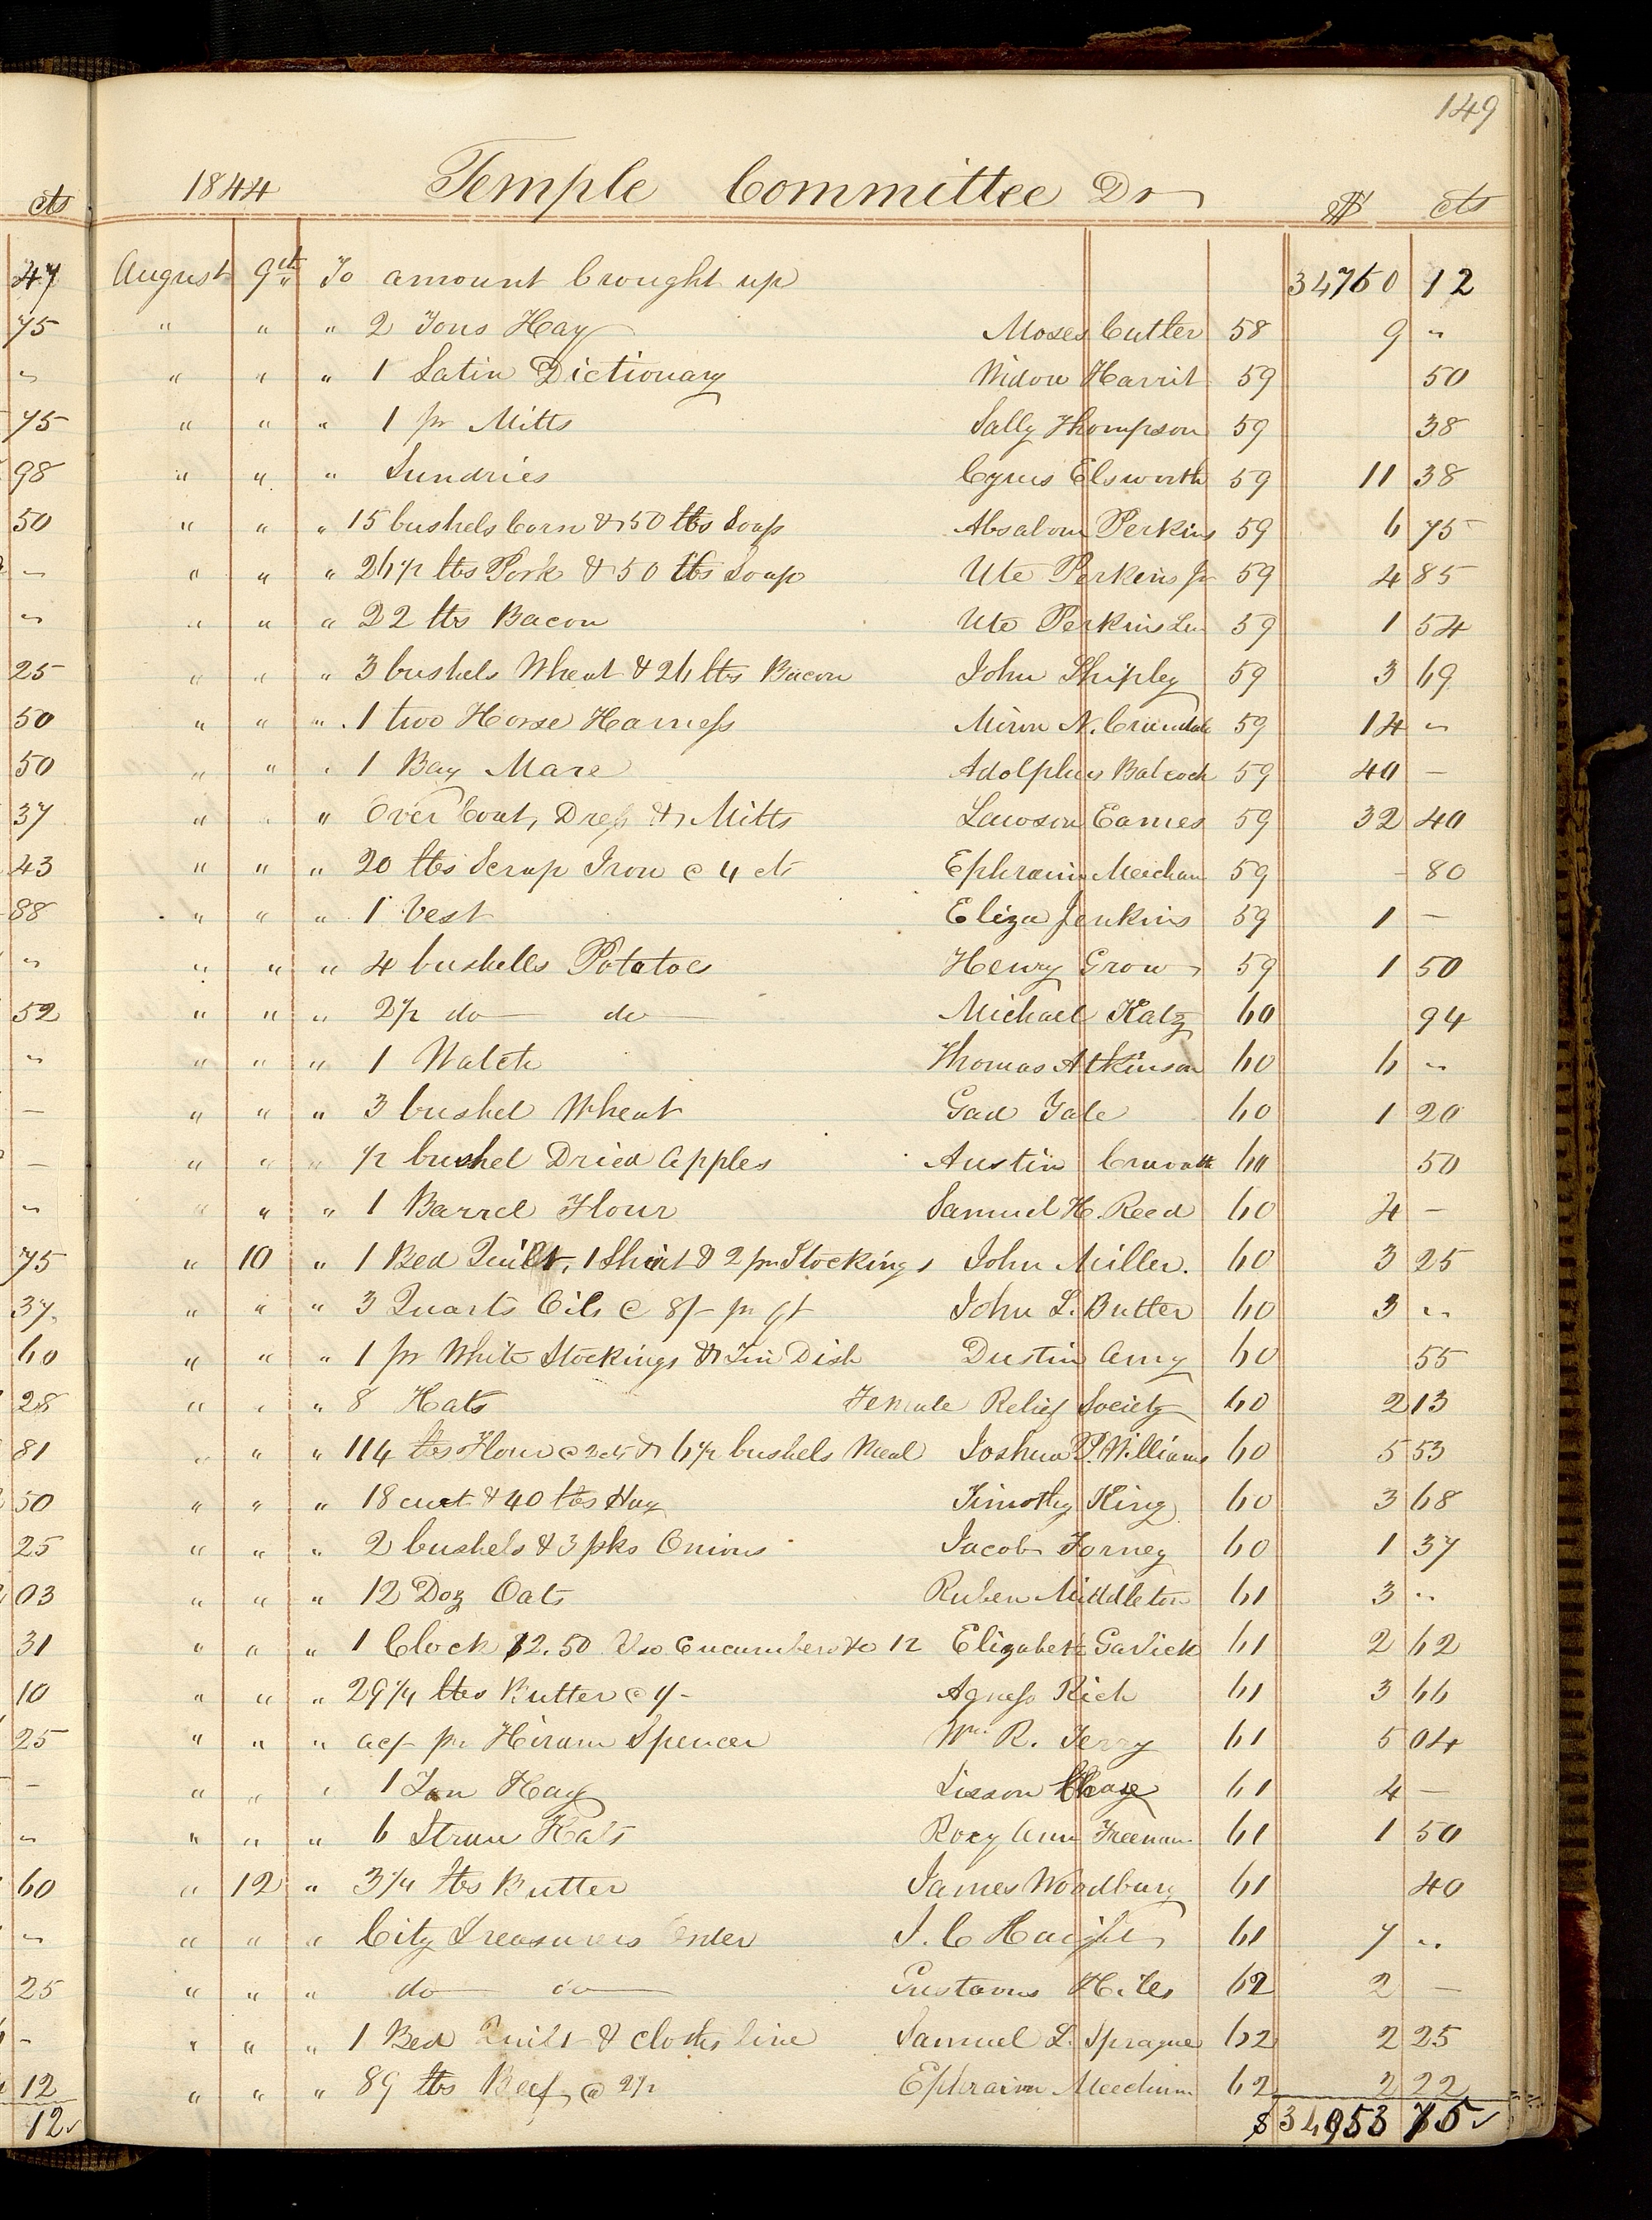 149
cts 1844 Temple Committee Dr $ cts
47 August 9th To amount brought up 34760 12
75 " " " 2 Tons Hay Moses Cutler 58 9 "
" " " " 1 Latin Dictionary Widow Harrit 59 50
75 " " " 1 pr Mitts Sally Thompson 59 38
98 " " " Sundries Cyrus Elsworth 59 11 38
50 " " " 15 bushels Corn & 50 lbs Soap Absalom Perkins 59 6 75
– " " " 26 1/2 lbs Pork & 50 lbs Soap Ute Perkins Jr 59 4 85
" " " " 22 lbs Bacon Ute Perkins Sen 59 1 54
25 " " " 3 bushels Wheat & 26 lbs Bacon John Shipley 59 3 69
50 " " " 1 two Horse Harness Miron N. Crandale 59 14 "
50 " " " 1 Bay Mare Adolphus Babcock 59 40 –
37 " " " Over Coat, Dress & Mitts Lawson Eames 59 32 40
43 " " " 20 lbs Scrap Iron @ 4 cts Ephraim Meicham 59 - 80
88 " " " 1 Vest Eliza Jenkins 59 1 –
" " " " 4 bushells Potatoes Henry Grow 59 1 50
52 " " " 2 1/2 do do Michael Katz 60 94
" " " " 1 Watch Thomas Atkinson 60 6 "
– " " " 3 bushel Wheat Gad Yale 60 1 20
– " " " 1/2 bushel Dried Apples Austin Cravath 60 50
" " " " 1 Barrel Flour Samuel H. Reed 60 4 –
75 " 10 " 1 Bed Quilt, 1 Shirt & 2 pr Stockings John Miller. 60 3 25
37 " " " 3 Quarts Oil @ 8/- pr qt John L. Butter 60 3 "
60 " " " 1 pr White Stockings & Tin Dish Dustin Amy 60 55
28 " " " 8 Hats Female Relief Society 60 2 13
81 " " " 114 lbs Flour @ 2 cts & 6 1/2 bushels Meal Joshua P. Williams 60 5 53
50 " " " 18 cwt & 40 lbs Hay Timothy King 60 3 68
25 " " " 2 bushels & 3 pks Onions Jacob Forney 60 1 37
03 " " " 12 Doz Oats Ruben Middleton 61 3 "
31 " " " 1 Clock $2.50 Cucumbers 12 Elizabeth Gavick 61 2 62
10 " " " 29 1/4 lbs Butter @ Agness Rich 61 3 66
25 " " " acf pr Hiram Spencer Wm. R. Terry 61 5 04
– " " " 1 Ton Hay Sisson Chase 61 4 –
" " " " 6 Straw Hats Roxy Ann Freeman 61 1 50
60 " 12 " 3 1/4 lbs Butter James Woodbury 61 40
" " " " City Treasurers Order I. C Haight 61 7 "
25 " " " do do Gustavus Hiles 62 2 –
– " " " 1 Bed Quilt & clothes line Samuel L. Sprague 62 2 25
12 " " " 89 lbs Beef @ 2 1/2 Ephraim Meecham 62 2 22
12 $34953 75